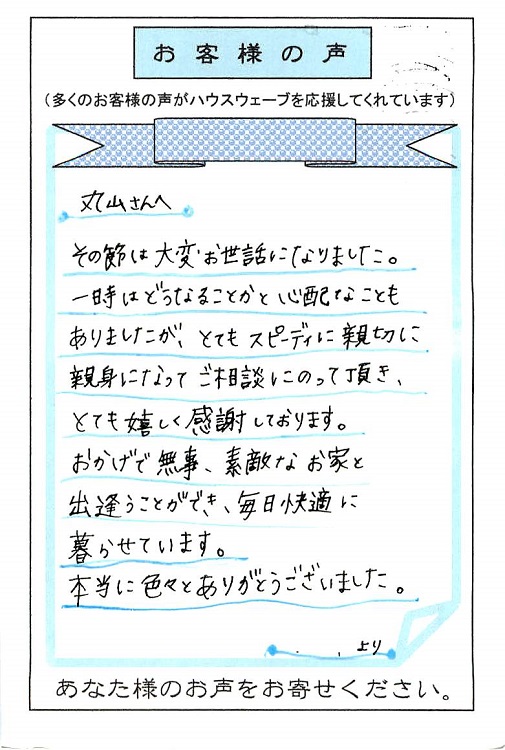 お客様の声
（多くのお客様の声がハウスウェーブを応援してくれています）
丸山さんへ
その節は大変お世話になりました。
一時はどうなることかと心配なことも
ありましたが、とてもスピーディに親切に
親身になってご相談にのって頂き、
とても嬉しく感謝しております。
おかげで無事、素敵なお家と
出逢うことができ、毎日快適に
暮らせています。
本当に色々とありがとうございました。
より
あなた様のお声をお寄せください。